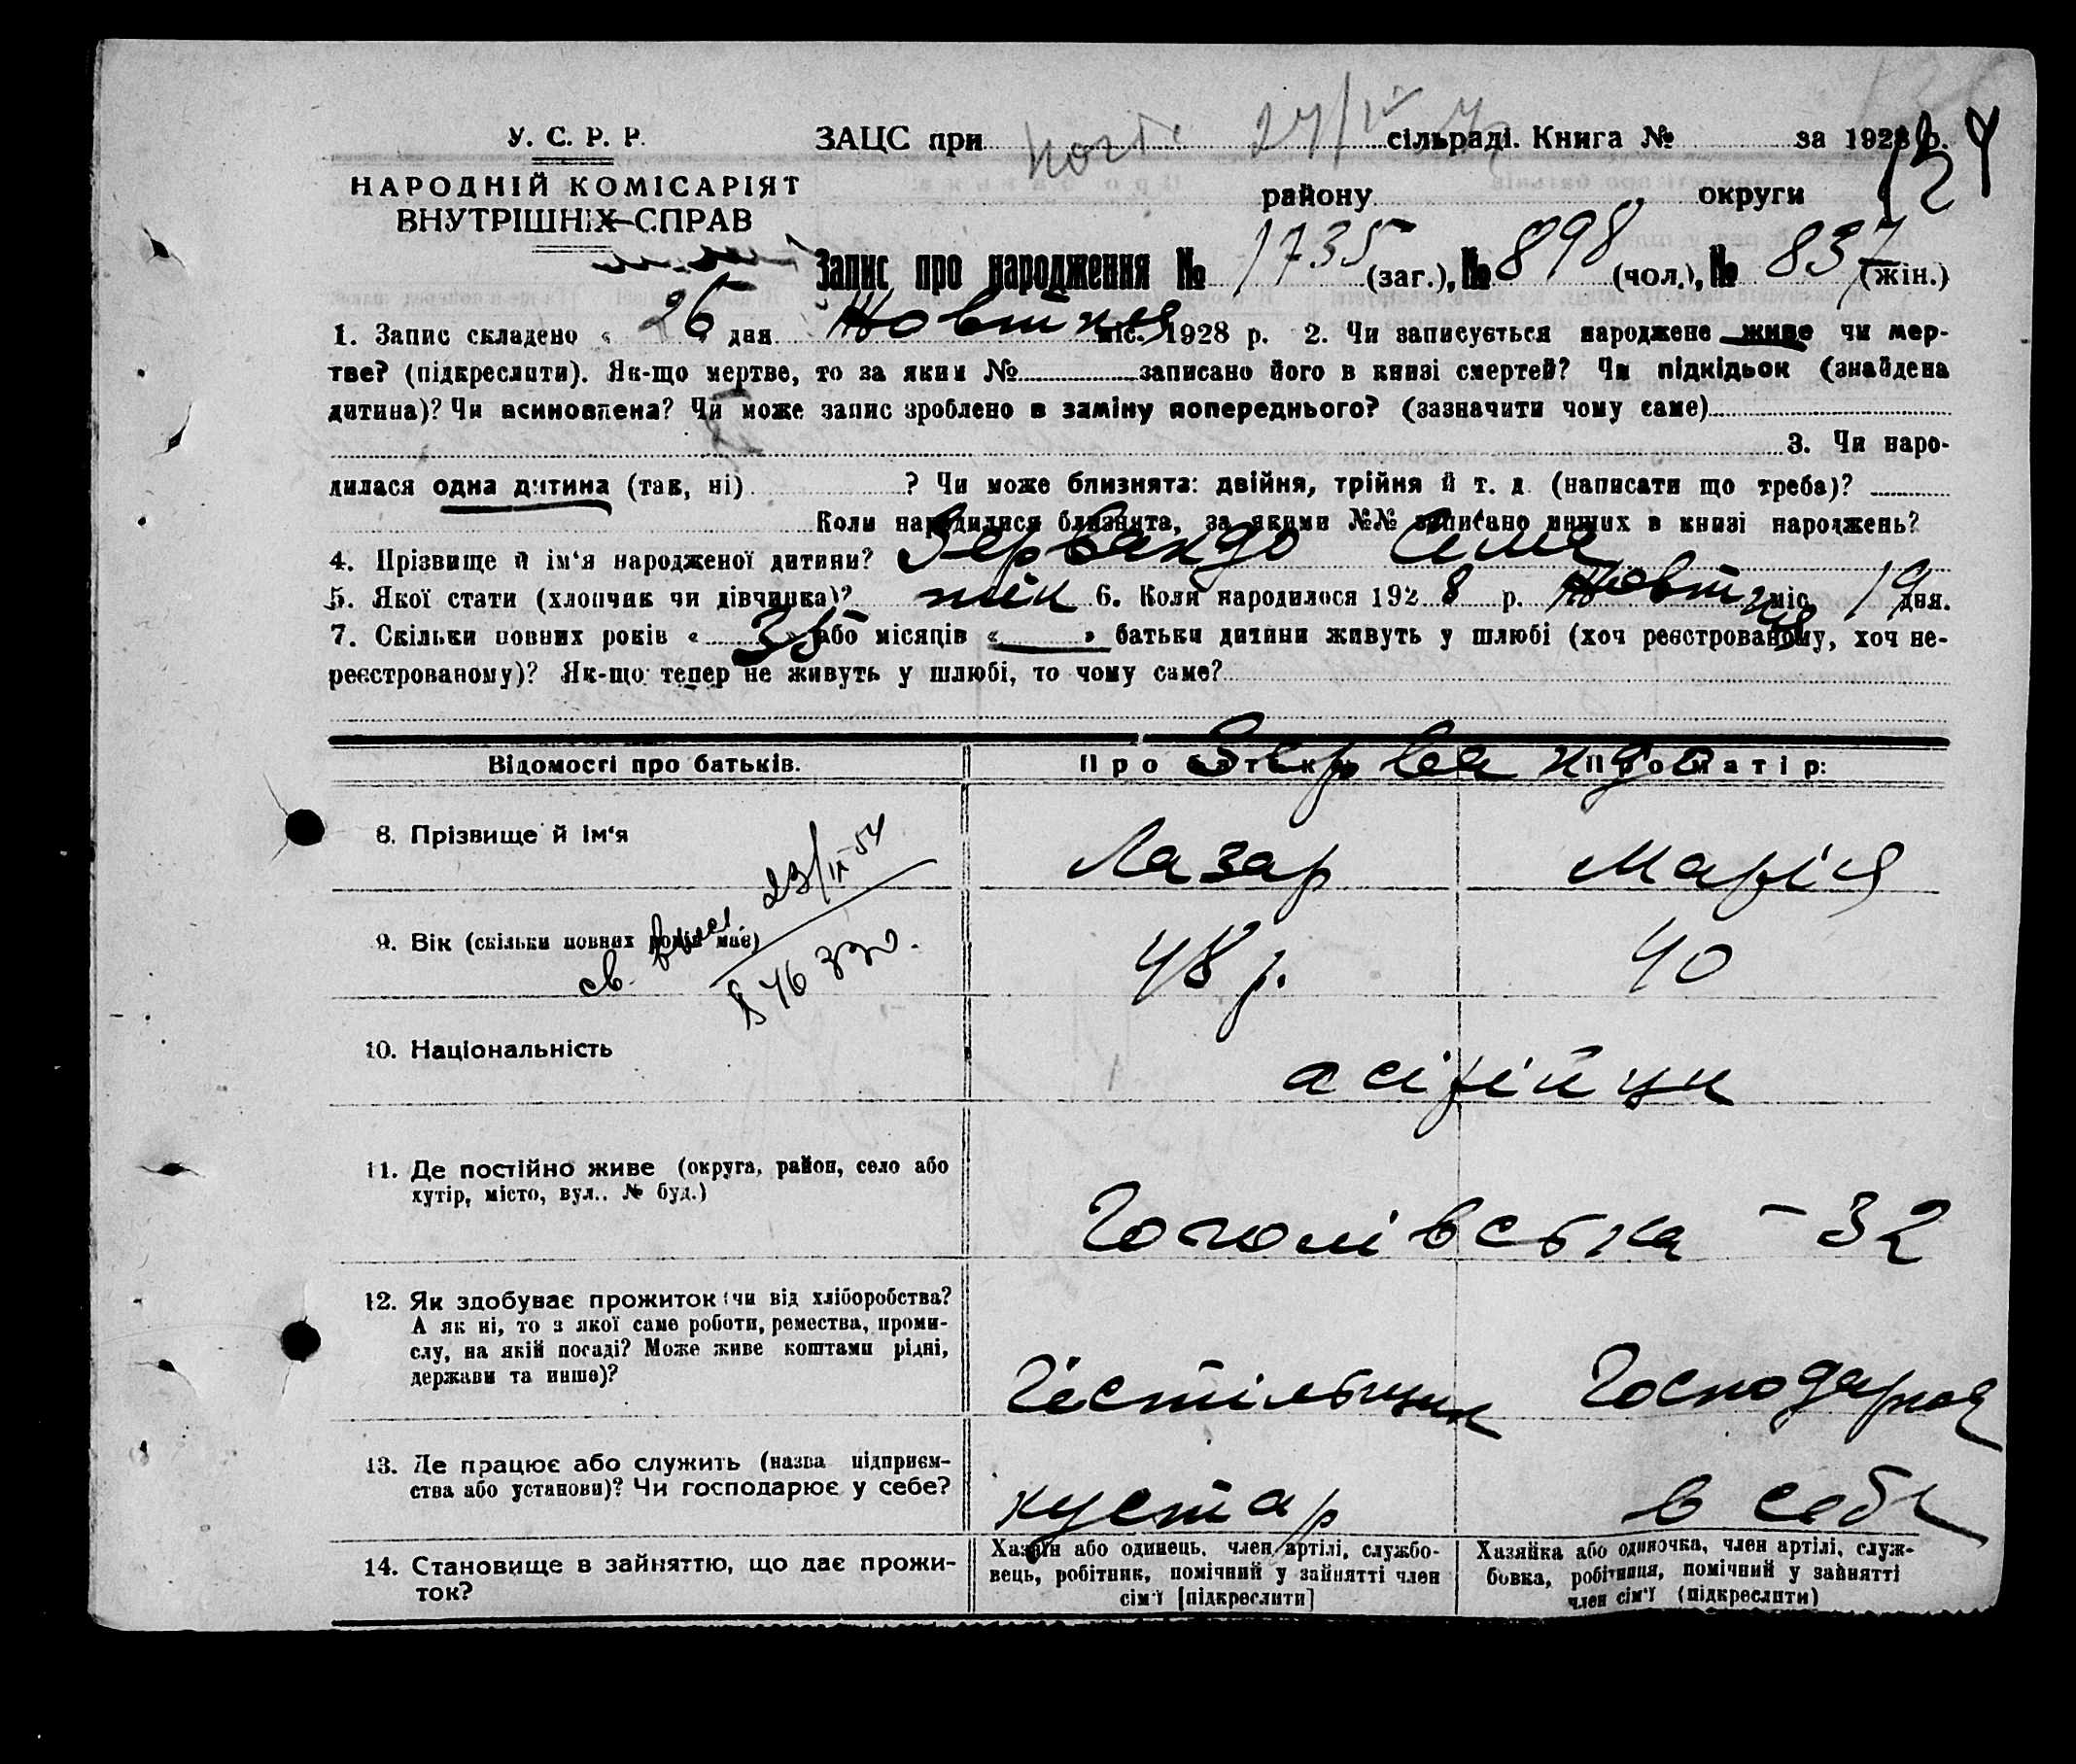 У. С. Р. Р.
ЗАЦС при сільраді. Книга № за 1928 р.
27/IV
124
НАРОДНІЙ КОМІСАРІЯТ
ВНУТРІШНІХ СПРАВ
району округи
Запис про народження № 1735 (заг.), № 898 (чол.), № 837 (жін.)
1. Запис складено « 26 дня Жовтня міс. 1928 р. 2. Чи записується народжене живе чи мер-
тве? (підкреслити). Як-що мертве, то за яким № записано його в книзі смертей? Чи підкідьок (знайдена
дитина)? Чи всиновлена? Чи може запис зроблено в заміну попереднього? (зазначити чому саме)
3. Чи наро-
дилася одна дитина (так, ні) ? Чи може близнята: двійня, трійня й т. д. (написати що треба)?
Коли народилися близнята, за якими №№ записано инших в книзі народжень?
4. Прізвище й ім'я народженої дитини? Зервандо
5. Якої статі (хлопчик чи дівчинка)? 6. Коли народилося 1928 р. Жовтня міс. 19 дня.
7. Скільки повних років « 35 » або місяців « » батьки дитини живуть у шлюбі (хоч реєстрованому, хоч не-
реєстрованому)? Як-що тепер не живуть у шлюбі, то чому саме?
Відомості про батьків. Про батька: Про матір:
Зервандо
8. Прізвище й ім'я Лазар Марія
9. Вік (скільки повних років має) 48 р. 40
св. 23/IX 54
10. Національність асірійци
11. Де постійно живе (округа, район, село або
хутір, місто, вул.. № буд.)
Гоголівська - 32
12. Як здобуває прожиток (чи від хліборобства?
А як ні, то з якої саме роботи, ремества, проми-
слу, на якій посаді? Може живе коштами рідні,
держави та инше)?
Чістільщик Господарює
13. Де працює або служить (назва підприєм-
ства або установи)? Чи господарює у себе?
кустар в себе
14. Становище в зайняттю, що дає прожи-
ток?
Хазяїн або одинець, член артілі, службо-
вець, робітник, помічний у зайнятті член
сім'ї [підкреслити]
Хазяйка або одиночка, член артілі, служ-
бовка, робітниця, помічний у зайнятті
член сім'ї (підкреслити)